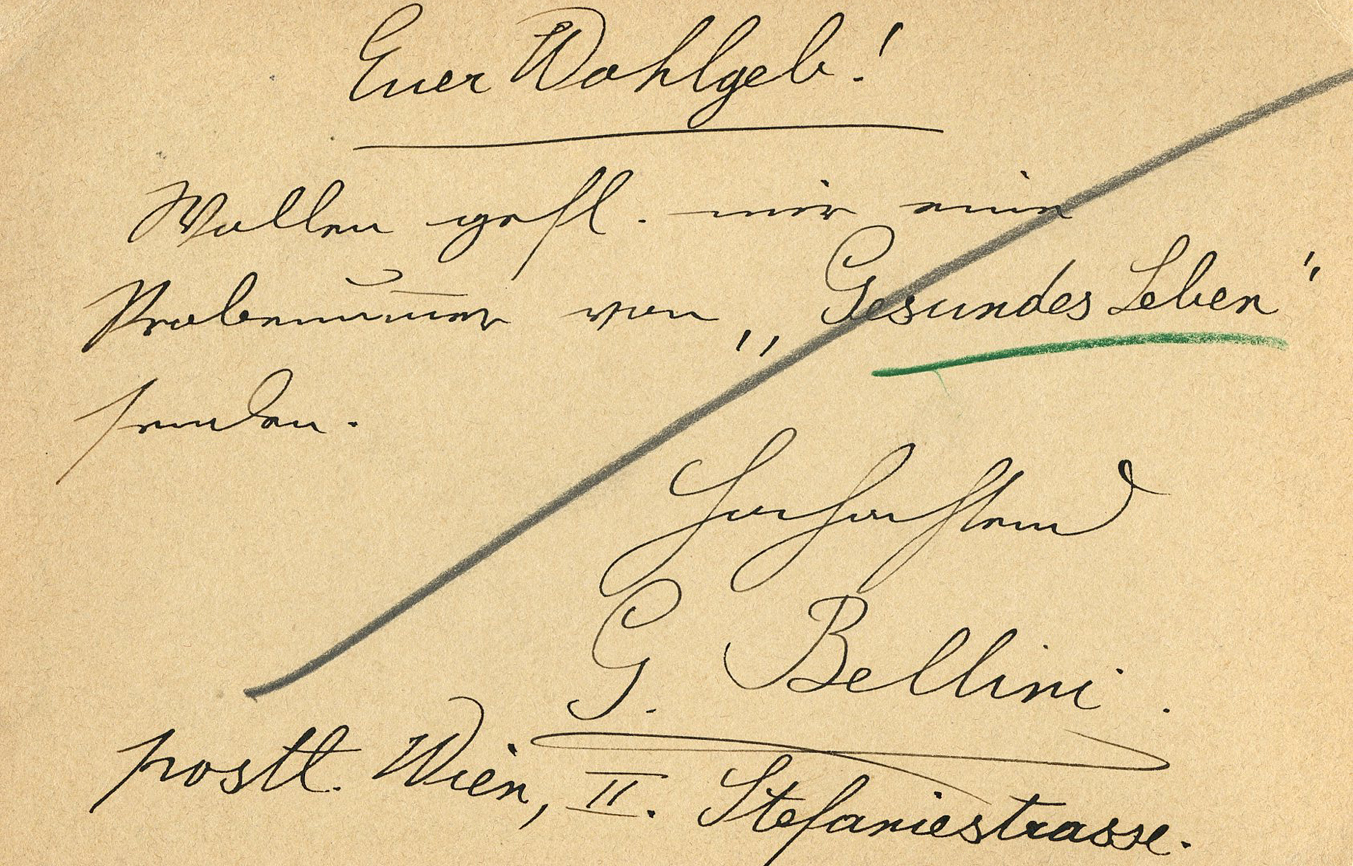 Euer Wohlgeb!
Wollen gefl. mir eine
Probenum̄er von „Gesundes Leben"
senden.
Hochachtend
G. Bellini.
postl. Wien, II. Stefaniestrasse.